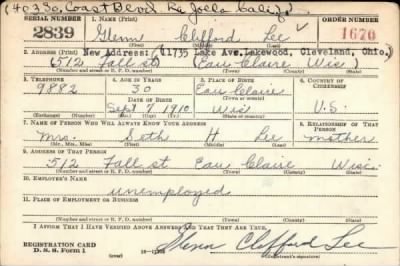 (4073a, Coast Blvd La Jolla Calif)
SERIAL NUMBER 1. NAME (Print) ORDER NUMBER
2839 Glenn Clifford Lee 1670
(First) (Middle) (Last)
2. ADDRESS (Print) New Address: (11735 Lake Ave, Lakewood, Cleveland, Ohio.)
(512 Fall st (Eau Claire Wis)
(Number and street or R. F. D. number) (Town) (County) (State)
3. TELEPHONE 4. AGE IN YEARS 5. PLACE OF BIRTH 6. COUNTRY OF CITIZENSHIP
9882 30 Eau Claire
DATE OF BIRTH (Town or county)
Sept 7 1910 Wis U.S.
(Exchange) (Number) (Mo.) (Day) (Yr.) (State or country)
7. NAME OF PERSON WHO WILL ALWAYS KNOW YOUR ADDRESS 8. RELATIONSHIP OF THAT PERSON
Mrs. Seth H Lee mother
(Mr., Mrs., Miss) (First) (Middle) (Last)
9. ADDRESS OF THAT PERSON
512 Fall st Eau Claire Wis.
(Number and street or R. F. D. number) (Town) (County) (State)
10. EMPLOYER'S NAME
unemployed
11. PLACE OF EMPLOYMENT OR BUSINESS
(Number and street or R. F. D. number) (Town) (County) (State)
I AFFIRM THAT I HAVE VERIFIED ABOVE ANSWERS AND THAT THEY ARE TRUE.
REGISTRATION CARD
D. S. S. Form 1 Glenn Clifford Lee
(Registrant's signature)